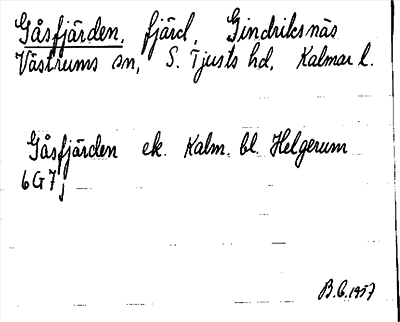 Gåsfjärden, fjärd, Gindriksnäs
Västrums sn, S. Tjusts hd, Kalmar l.
Gåsfjärden ek. Kalm. bl. Helgerum
6G7j
B.G. 1957